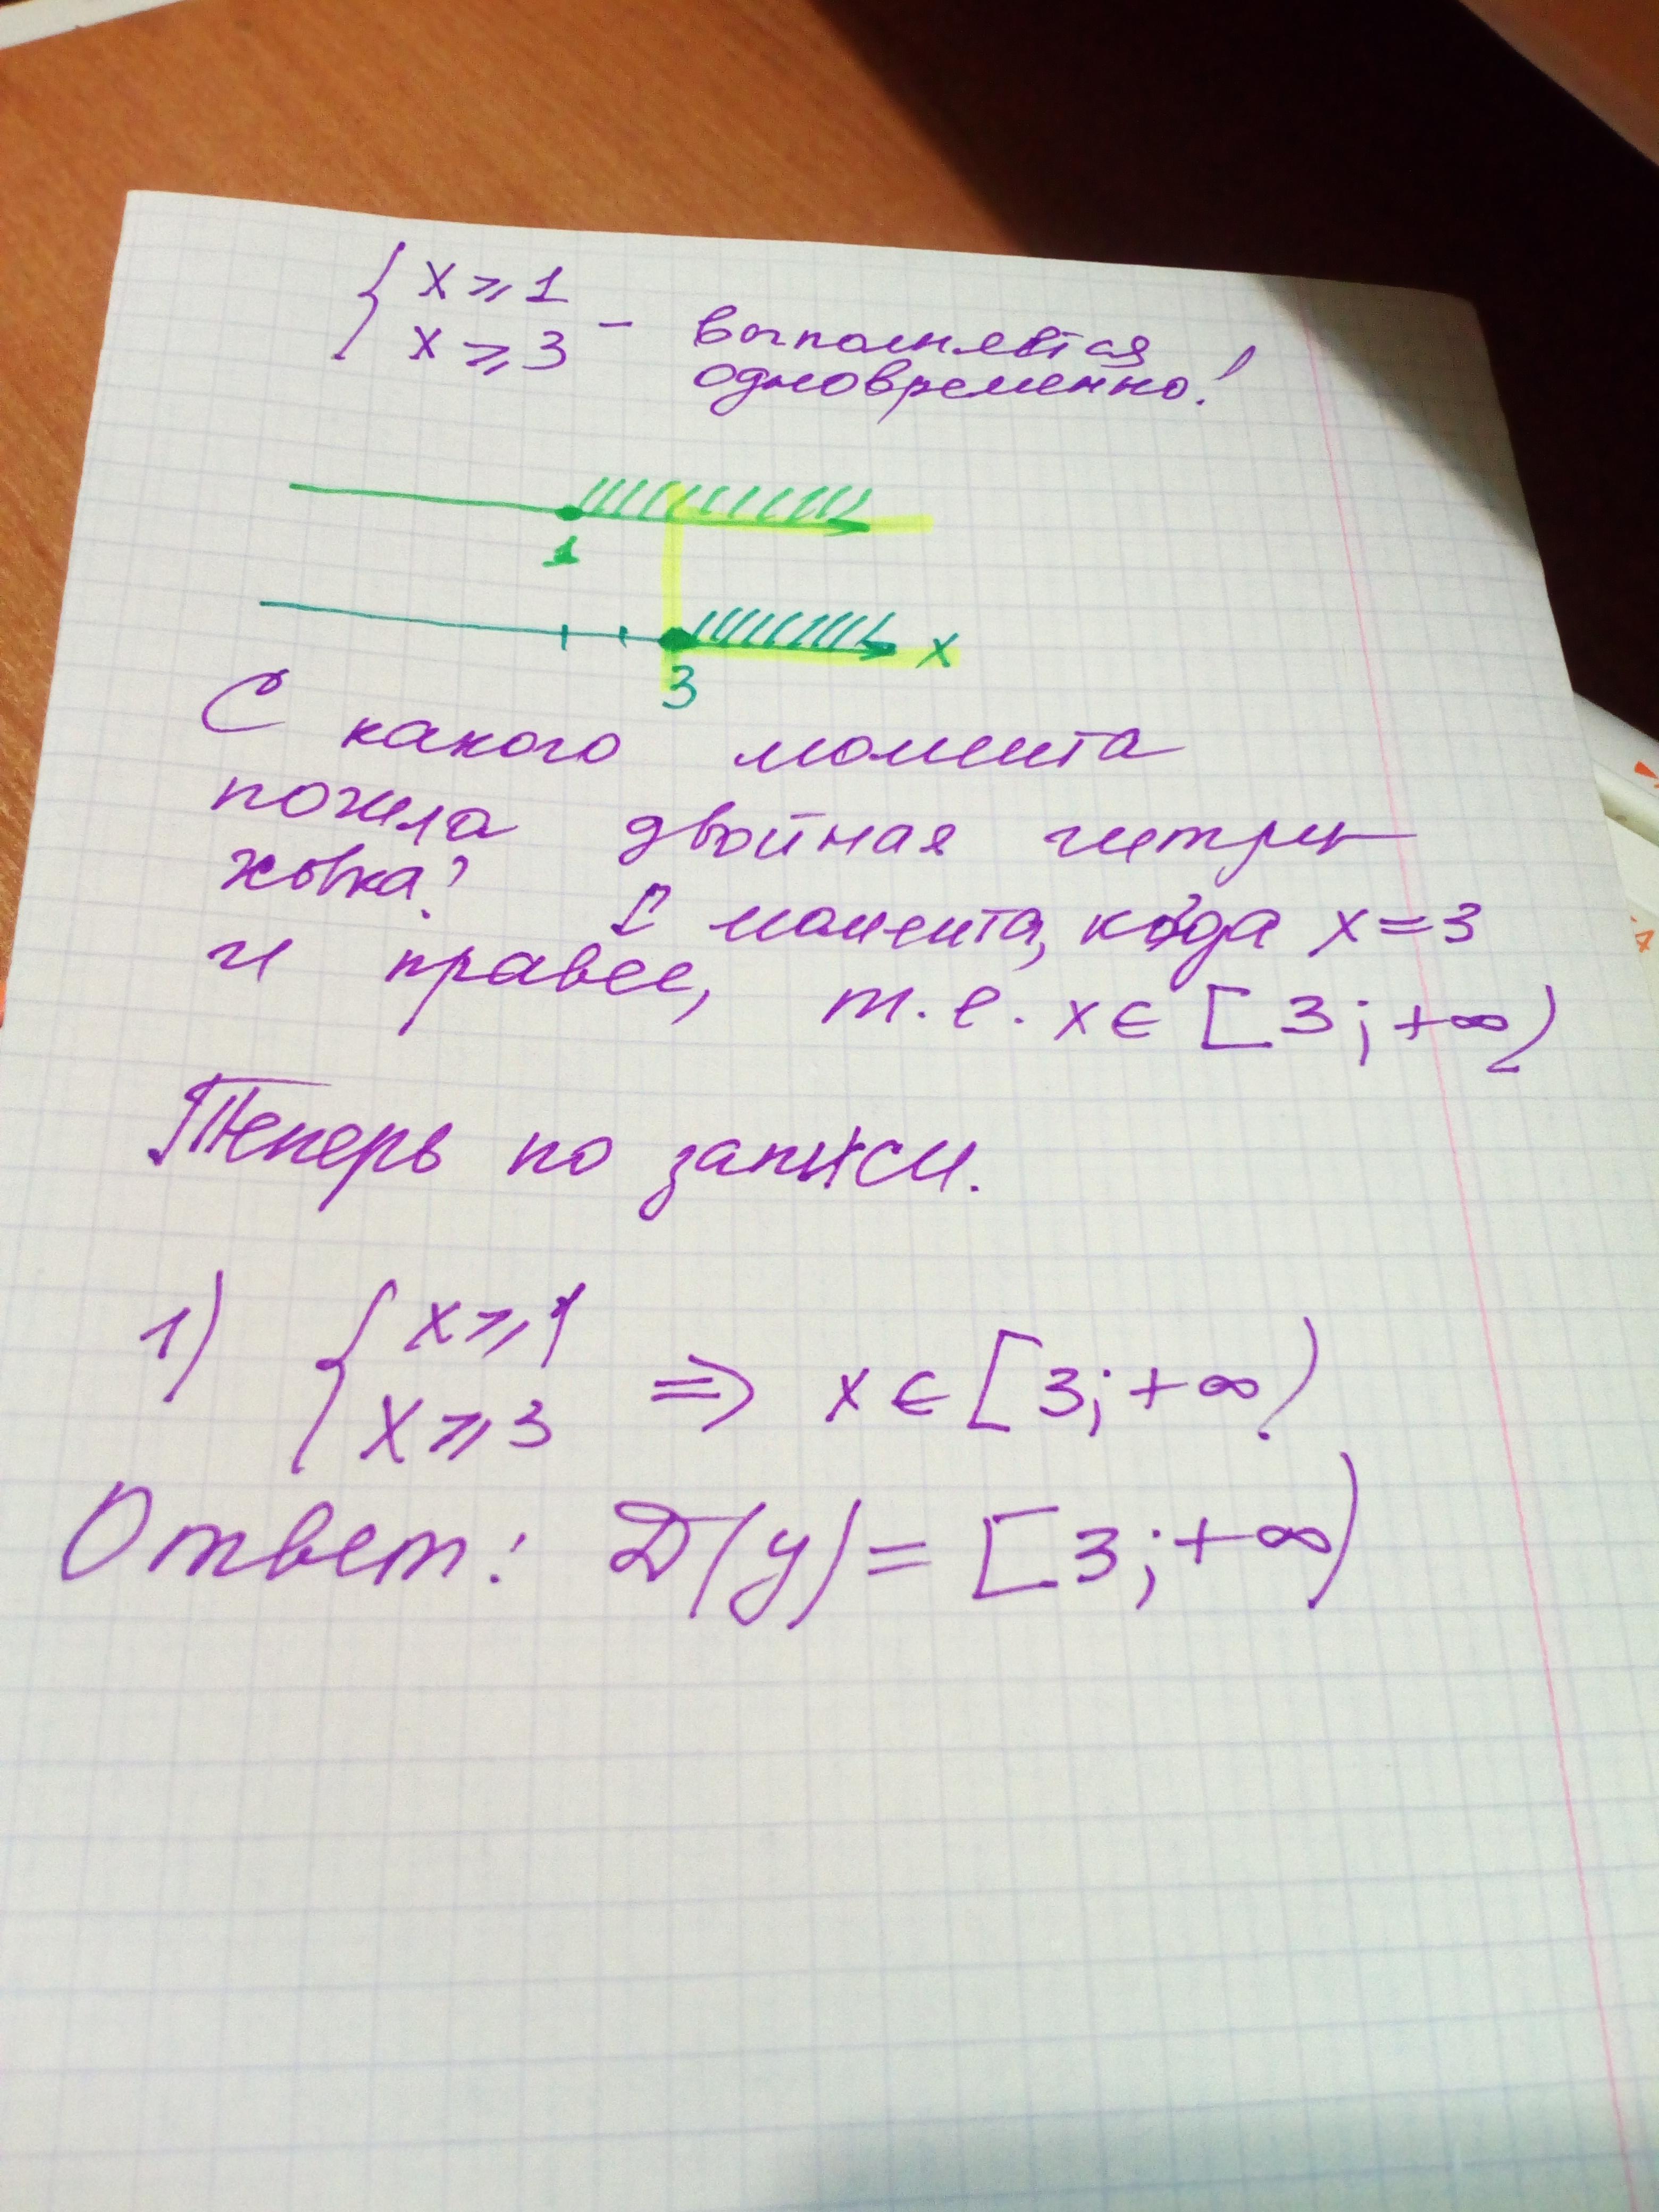 { x ⩾ 1
x ⩾ 3 – выполняется
одновременно!
1
3 x
С какого момента
пошла двойная штри-
ховка? С момента, когда x=3
и правее, т.е. x∈[3;+∞)
Теперь по записи.
1) { x⩾1
x⩾3 ⇒ x∈[3;+∞)
Ответ: D(y)=[3;+∞)